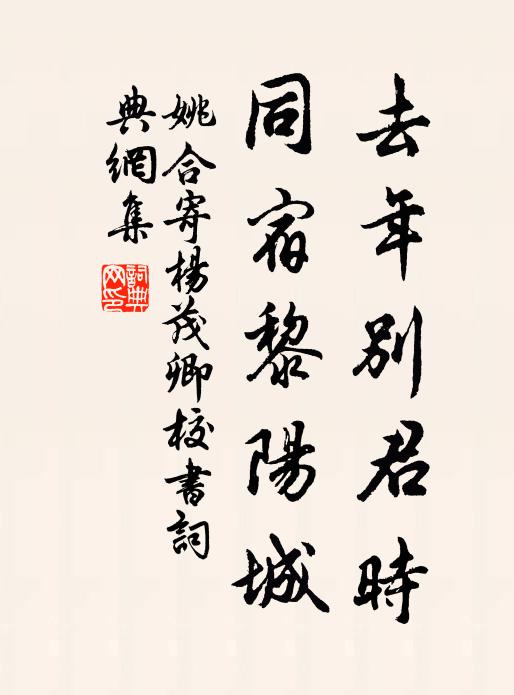 去年別君時
同宿黎陽城
姚合寄楊茂卿校書詞
典網集
詞典
网印